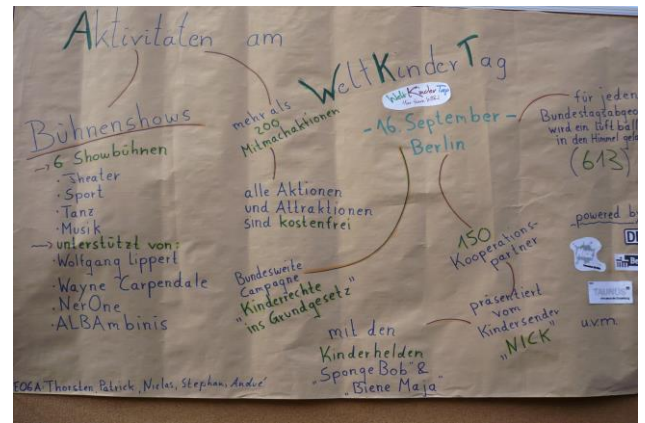 Aktivitäten am
WeltKinderTag
- 16. September -
Berlin
Bühnenshows
→ 6 Showbühnen
· Theater
· Sport
· Tanz
· Musik
→ unterstützt von:
· Wolfgang Lippert
· Wayne Carpendale
· NerOne
· ALBAmbinis
mehr als
200
Mitmachaktionen
alle Aktionen
und Attraktionen
sind kostenfrei
Bundesweite
Campagne
"Kinderrechte
ins Grundgesetz"
150
Kooperations-
partner
präsentiert
vom
Kindersender
"NICK"
mit den
Kinderhelden
"SpongeBob" &
"Biene Maja"
für jeden
wird ein Luftball
in den Himmel
(613)
powered by
uvm
EOGA: Thorsten, Patrick, Niclas, Stephan, André